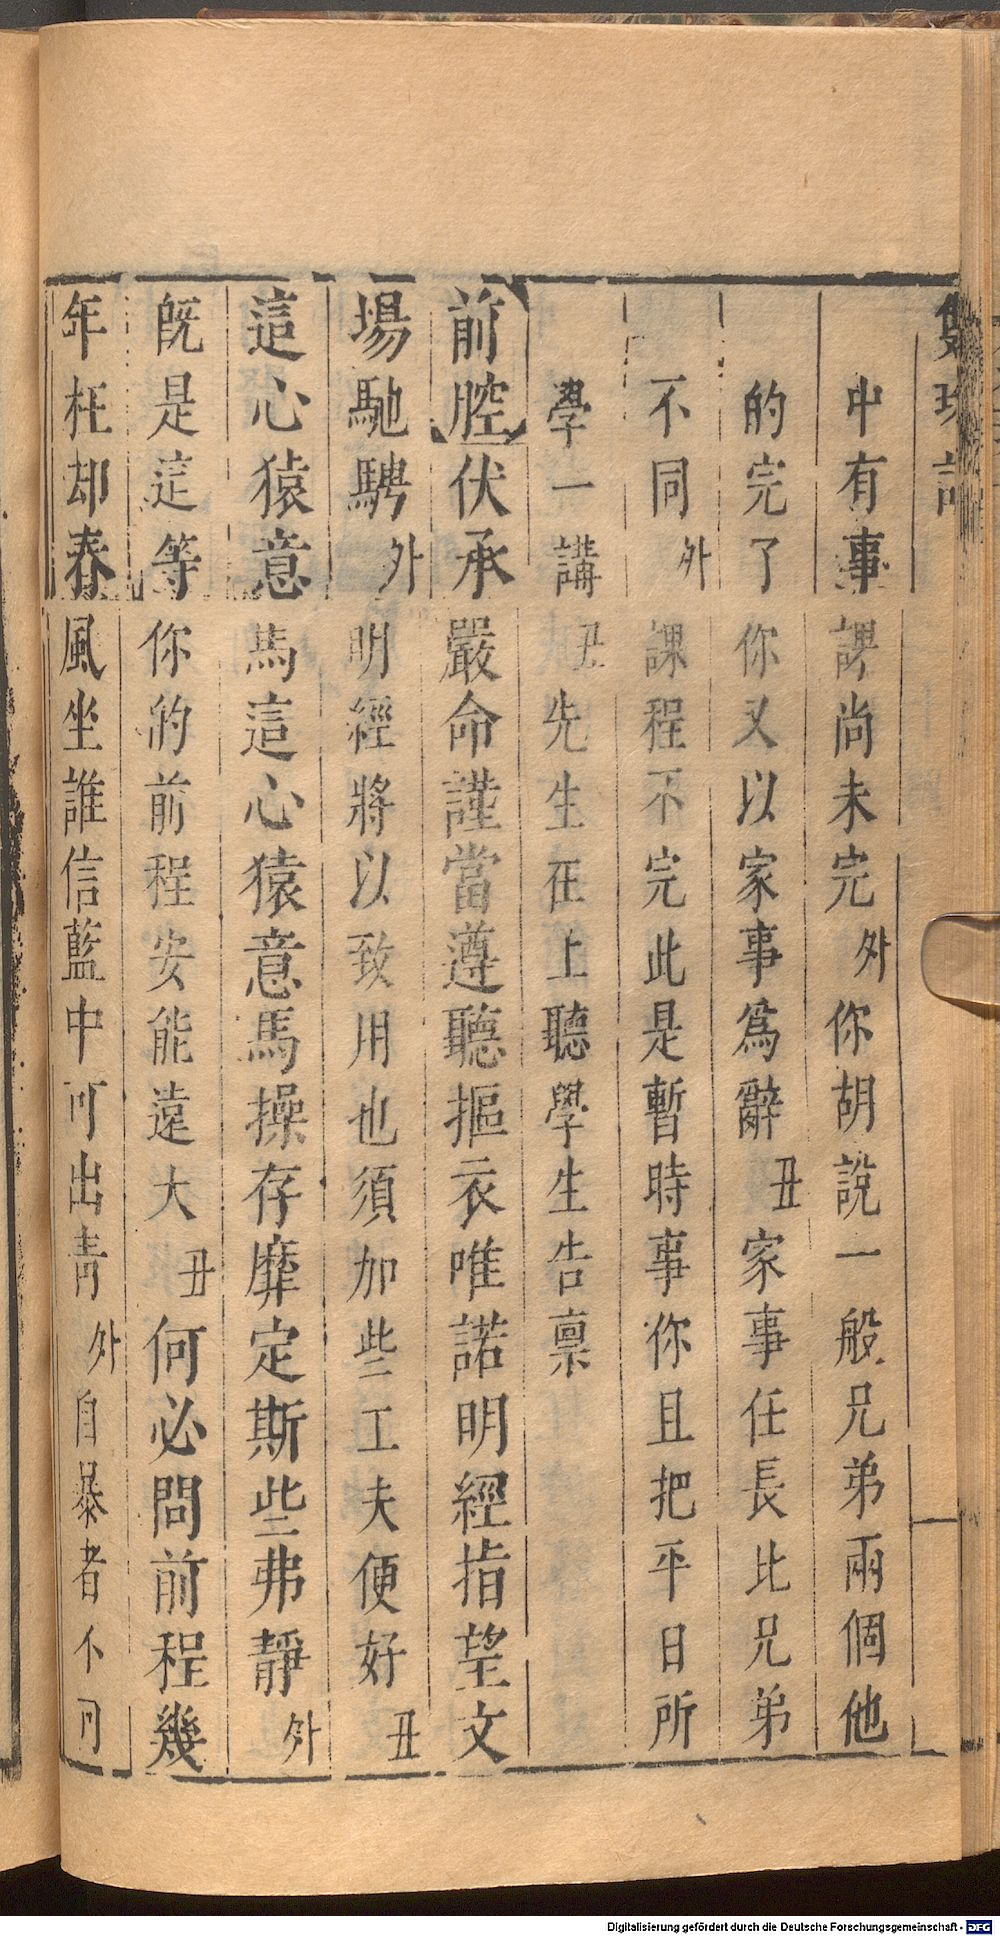 雙珠記
中有事課尚未完外你胡說一般兄弟兩個他
的完了你又以家事爲辭丑家事任長比兄弟
不同外課程不完此是暫時事你且把平日所
學一講丑先生在上聽學生告禀
前腔伏承嚴命謹當遵聽摳衣唯諾明經指望文
場馳騁外明經將以致用也須加些工夫便好丑
這心猿意馬這心猿意馬操存靡定斯些弗靜外
旣是這等你的前程安能遠大丑何必問前程幾
年枉却春風坐誰信藍中可出靑外自暴者不可
Digitalisierung gefördert durch die Deutsche Forschungsgemeinschaft - DFG